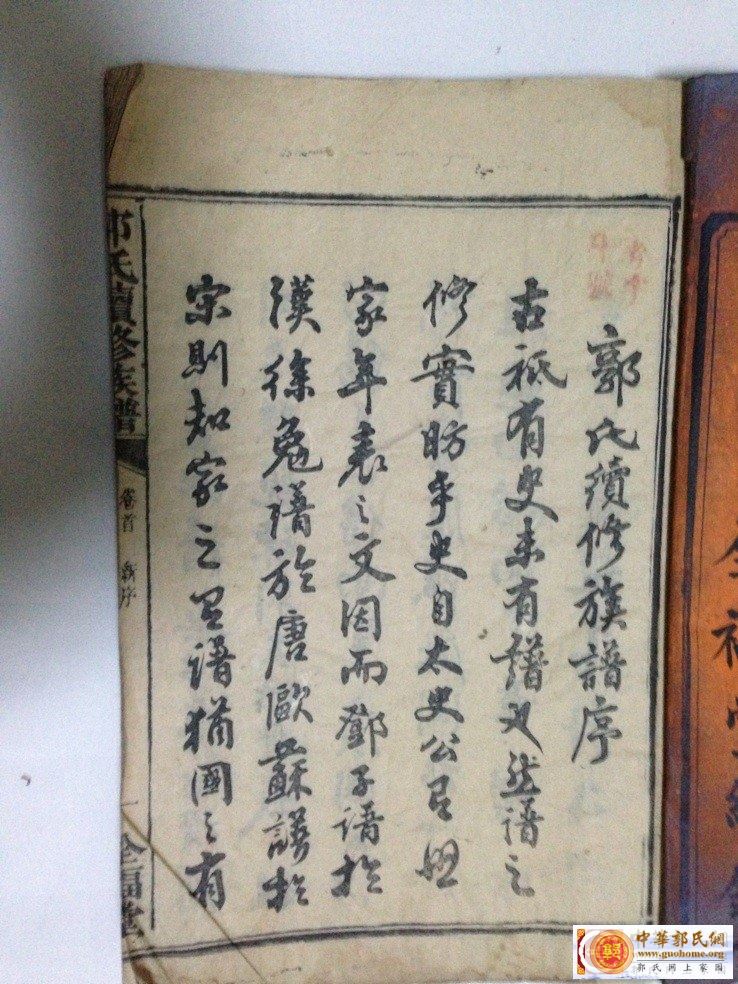 郭氏續修族譜序
古祗有史未有譜也然譜之
修實昉乎史自太史公有世
家年表之文因而鄧子譜於
漢徐勉譜於唐歐蘇譜於
宋則知家之有譜猶國之有
郭氏續修族譜
卷首 新序
一
全福堂
中華郭氏網
www.guohome.org
郭氏网上家园